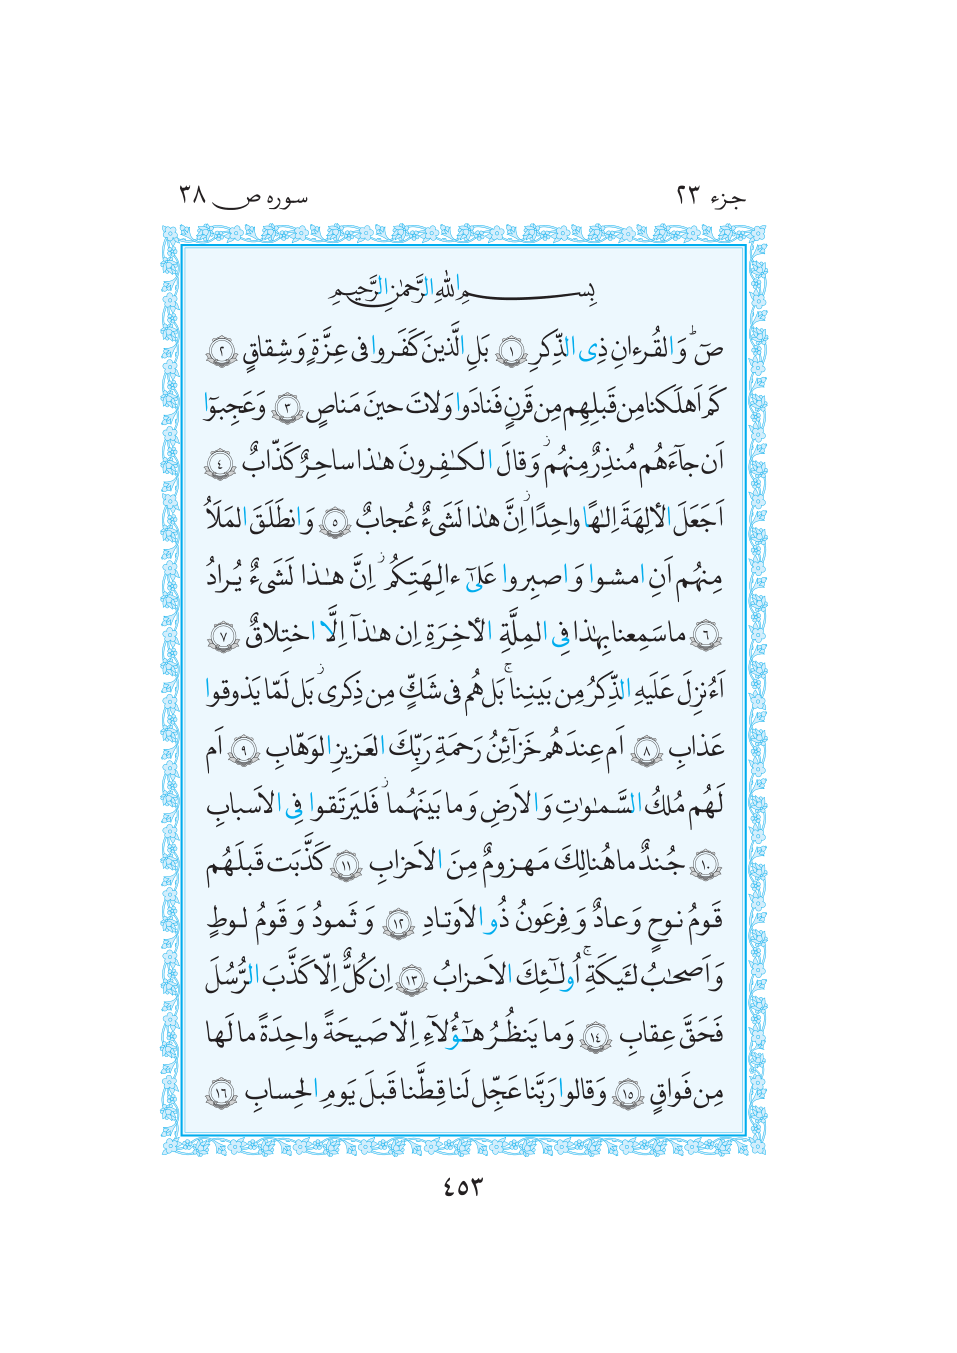 جزء ۲۳
سوره ص ۳۸
بِسمِ اللهِ الرَّحمٰنِ الرَّحيمِ
صٓ ۚ وَالقُرءانِ ذِى الذِّكرِ ﴿١﴾ بَلِ الَّذينَ كَفَروا فى عِزَّةٍ وَشِقاقٍ ﴿٢﴾
كَم اَهلَكنا مِن قَبلِهِم مِن قَرنٍ فَنادَوا وَلاتَ حينَ مَناصٍ ﴿٣﴾ وَعَجِبوٓا
اَن جآءَهُم مُنذِرٌ مِنهُم ۖ وَقالَ الكـٰفِرونَ هـٰذا ساحِرٌ كَذّابٌ ﴿٤﴾
اَجَعَلَ الأٰلِهَةَ اِلـٰهًا واحِدًا ۖ اِنَّ هـٰذا لَشَىءٌ عُجابٌ ﴿٥﴾ وَانطَلَقَ المَلَاُ
مِنهُم اَنِ امشوا وَاصبِروا عَلىٰٓ ءالِهَتِكُم ۖ اِنَّ هـٰذا لَشَىءٌ يُرادُ
﴿٦﴾ ما سَمِعنا بِهـٰذا فِى المِلَّةِ الأٰخِرَةِ اِن هـٰذآ اِلَّا اختِلاقٌ ﴿٧﴾
اَءُنزِلَ عَلَيهِ الذِّكرُ مِن بَينِنا ۚ بَل هُم فى شَكٍّ مِن ذِكرى ۖ بَل لَمّا يَذوقوا
عَذابِ ﴿٨﴾ اَم عِندَهُم خَزآئِنُ رَحمَةِ رَبِّكَ العَزيزِ الوَهّابِ ﴿٩﴾ اَم
لَهُم مُلكُ السَّمـٰوٰتِ وَالاَرضِ وَما بَينَهُما ۖ فَليَرتَقوا فِى الاَسبابِ
﴿١٠﴾ جُندٌ ما هُنالِكَ مَهزومٌ مِنَ الاَحزابِ ﴿١١﴾ كَذَّبَت قَبلَهُم
قَومُ نوحٍ وَعادٌ وَفِرعَونُ ذُو الاَوتادِ ﴿١٢﴾ وَثَمودُ وَقَومُ لوطٍ
وَاَصحـٰبُ لـَٔيكَةِ ۚ اُولـٰٓئِكَ الاَحزابُ ﴿١٣﴾ اِن كُلٌّ اِلّا كَذَّبَ الرُّسُلَ
فَحَقَّ عِقابِ ﴿١٤﴾ وَما يَنظُرُ هـٰٓؤُلآءِ اِلّا صَيحَةً واحِدَةً ما لَها
مِن فَواقٍ ﴿١٥﴾ وَقالوا رَبَّنا عَجِّل لَنا قِطَّنا قَبلَ يَومِ الحِسابِ ﴿١٦﴾
٤٥٣